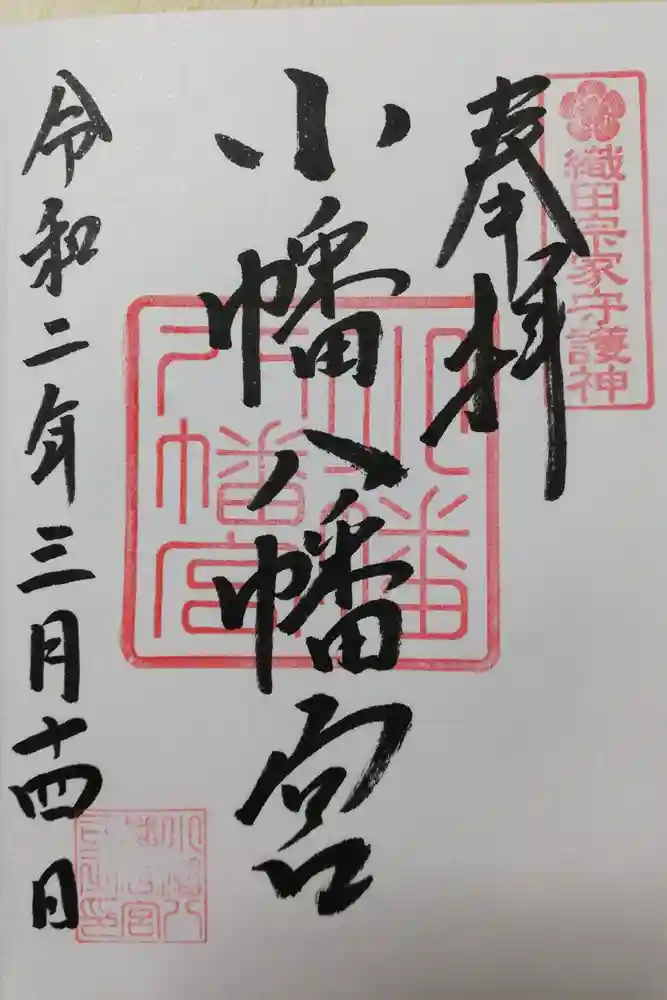 織田宗家守護神
奉拝
小幡八幡宮
小幡八幡宮
令和二年三月十四日